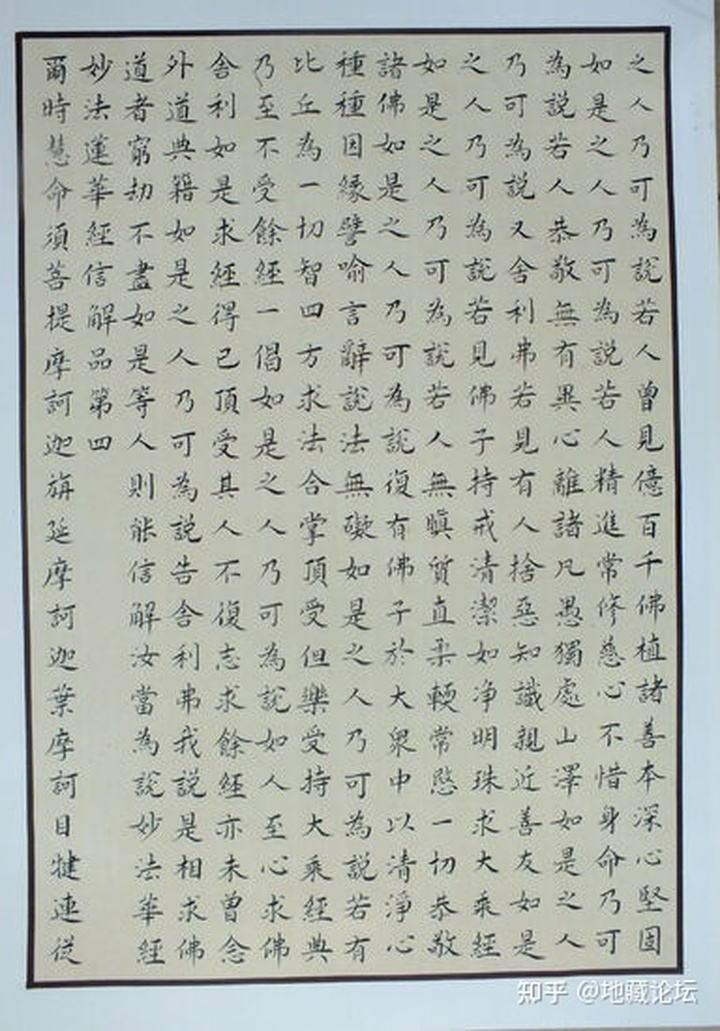 之人乃可為說若人曾見億百千佛植諸善本深心堅固
如是之人乃可為說若人精進常修慈心不惜身命乃可
為說若人恭敬無有異心離諸凡愚獨處山澤如是之人
乃可為說又舍利弗若見有人捨惡知識親近善友如是
之人乃可為說若見佛子持戒清潔如净明珠求大乘經
如是之人乃可為說若人無瞋質直柔輭常愍一切恭敬
諸佛如是之人乃可為說復有佛子於大衆中以清淨心
種種因緣譬喻言辭說法無礙如是之人乃可為說若有
比丘為一切智四方求法合掌頂受但樂受持大乘經典
乃至不受餘經一偈如是之人乃可為說如人至心求佛
舍利如是求經得已頂受其人不復志求餘經亦未曾念
外道典籍如是之人乃可為說告舍利弗我說是相求佛
道者窮劫不盡如是等人則能信解汝當為說妙法華經
妙法蓮華經信解品第四
爾時慧命須菩提摩訶迦旃延摩訶迦葉摩訶目犍連從
知乎 @地藏论坛